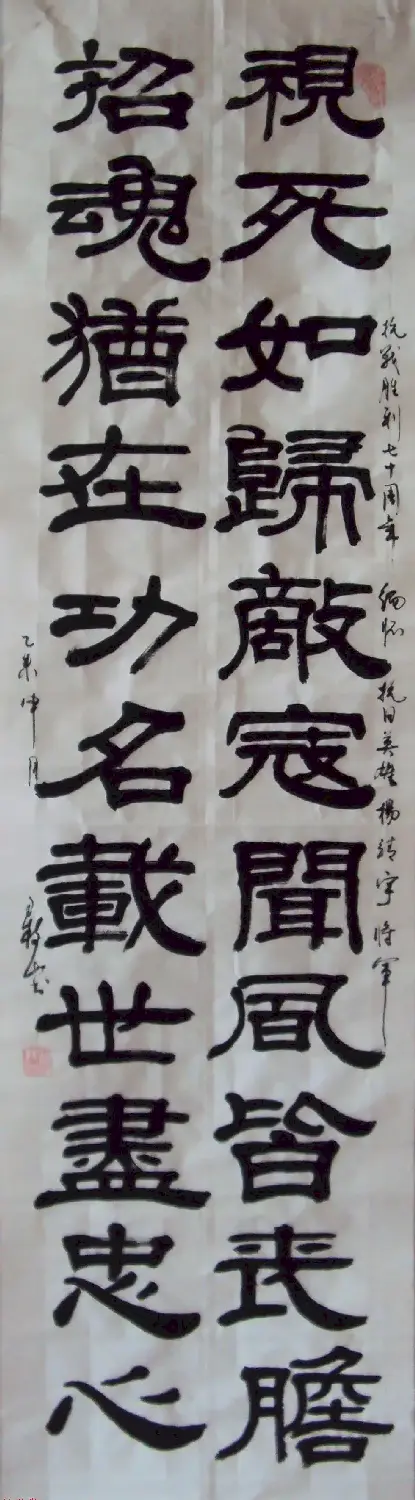 抗战胜利七十周年 缅怀 抗日英雄杨靖宇将军
視死如歸敵寇聞風皆丧膽
招魂猶在功名載世盡忠心
乙未申月